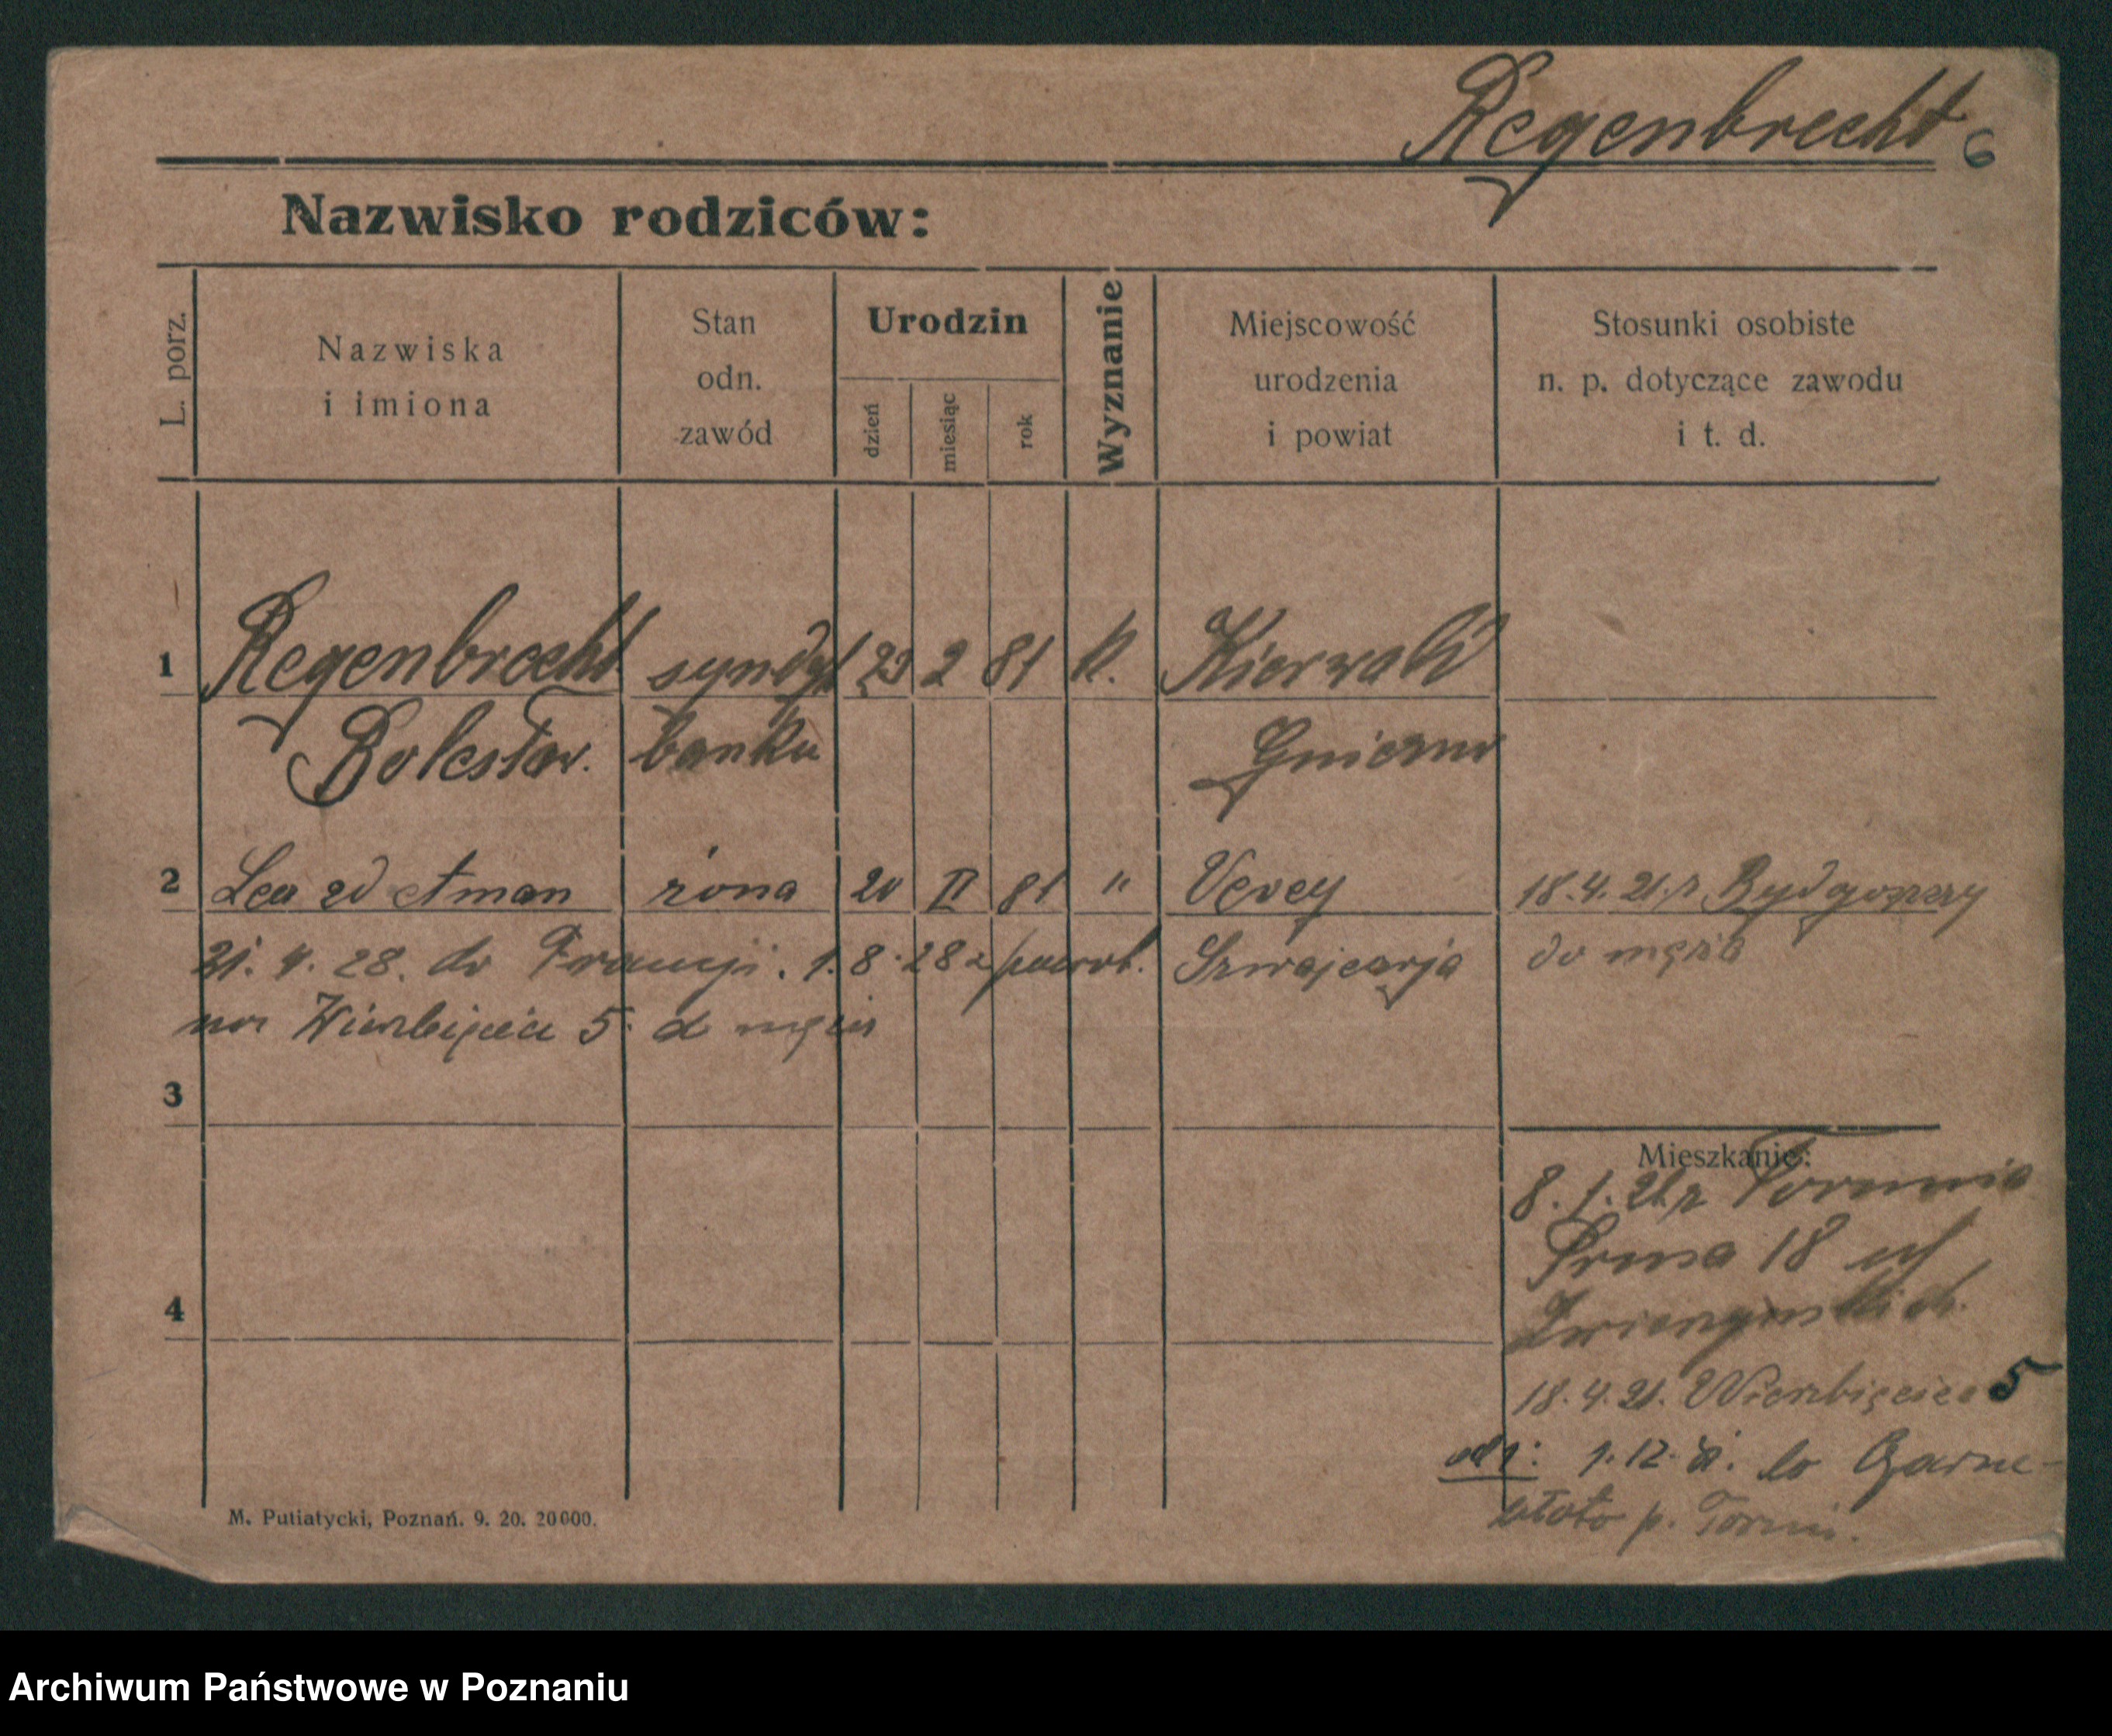 Regenbrecht 6
Nazwisko rodziców:
L. porz.
Nazwiska
i imiona
Stan
odn.
zawód
Urodzin
dzień
miesiąc
rok
Wyznanie
Miejscowość
urodzenia
i powiat
Stosunki osobiste
n. p. dotyczące zawodu
i t. d.
1 Regenbrecht syndyk 23 2 81 k.
Bolesław. banku Gniezno
2 Lea zd Aman żona 20 II 81 " Vevey 18.4.21. z Bydgoszczy
21. 4. 28. do Francji. 1. 8. 28 z powrot. Szwajcarja do męża
na Wierzbięcice 5.
3
Mieszkanie:
8. 1. 21. z Torunia
Prusa 18
4
18.4.21. Wierzbięcice 5
1.12. do Czarne-
błoto p. Toruń.
M. Putiatycki, Poznań. 9. 20. 20000.
Archiwum Państwowe w Poznaniu